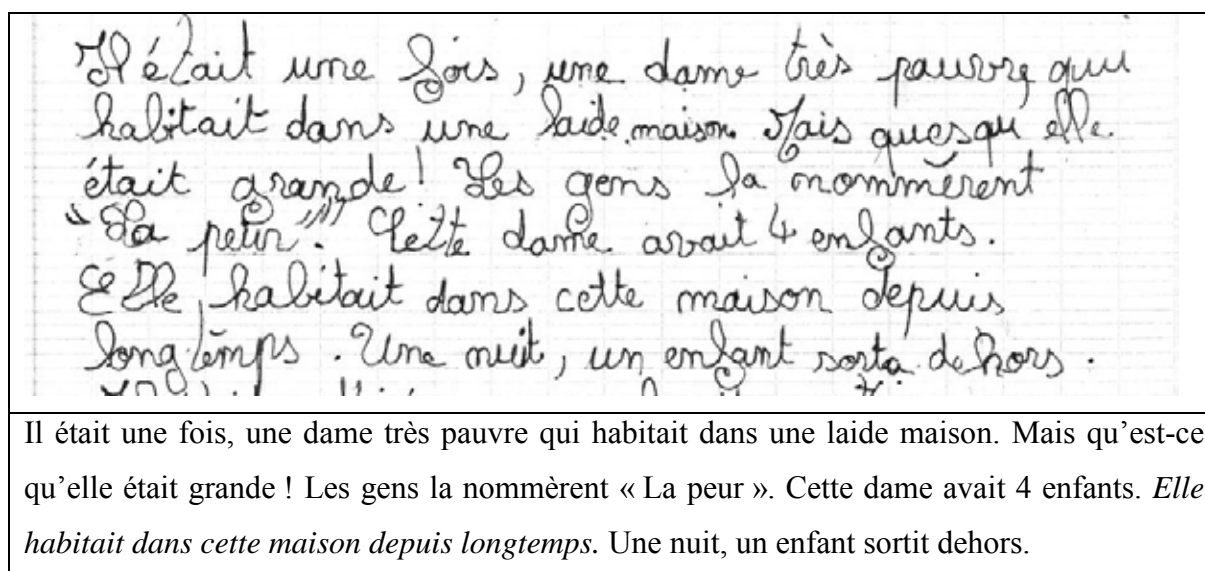 Il était une fois, une dame très pauvre qui
habitait dans une laide maison. Mais quesqu elle
était grande! Les gens la nommèrent
"La peur". Cette dame avait 4 enfants.
Elle habitait dans cette maison depuis
longtemps. Une nuit, un enfant sorta dehors.
Il était une fois, une dame très pauvre qui habitait dans une laide maison. Mais qu’est-ce
qu’elle était grande ! Les gens la nommèrent « La peur ». Cette dame avait 4 enfants. Elle
habitait dans cette maison depuis longtemps. Une nuit, un enfant sortit dehors.